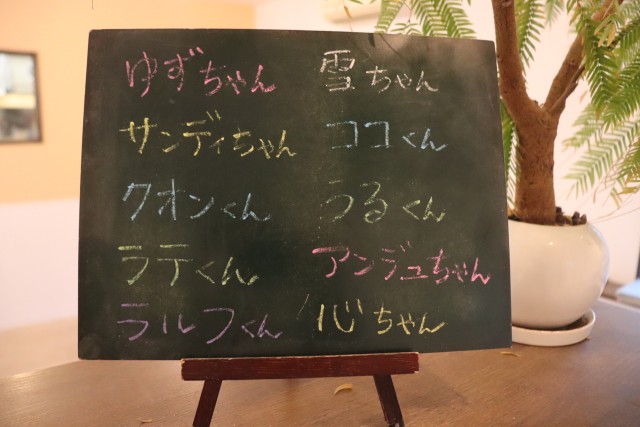 ゆずちゃん 雪ちゃん
サンディちゃん ココくん
クオンくん うるくん
ラテくん アンジュちゃん
ラルフくん 心ちゃん